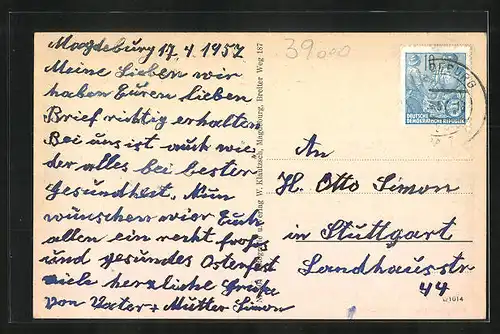 Magdeburg 17.4 1957
Meine Lieben wir
haben Euren lieben
Brief richtig erhalten
Bei uns ist auch wie
der alles bei bester
Gesundheit. Nun
wünschen wier Euch
allen ein recht frohes
und gesundes Osterfest
viele herzliche Grüße
von Vater + Mutter Simon
W. Klautzsch, Magdeburg, Breiter Weg 187
39000
DEUTSCHE
DEMOKRATISCHE REPUBLIK
5
An
H. Otto Simon
in Stuttgart
Landhausstr
44